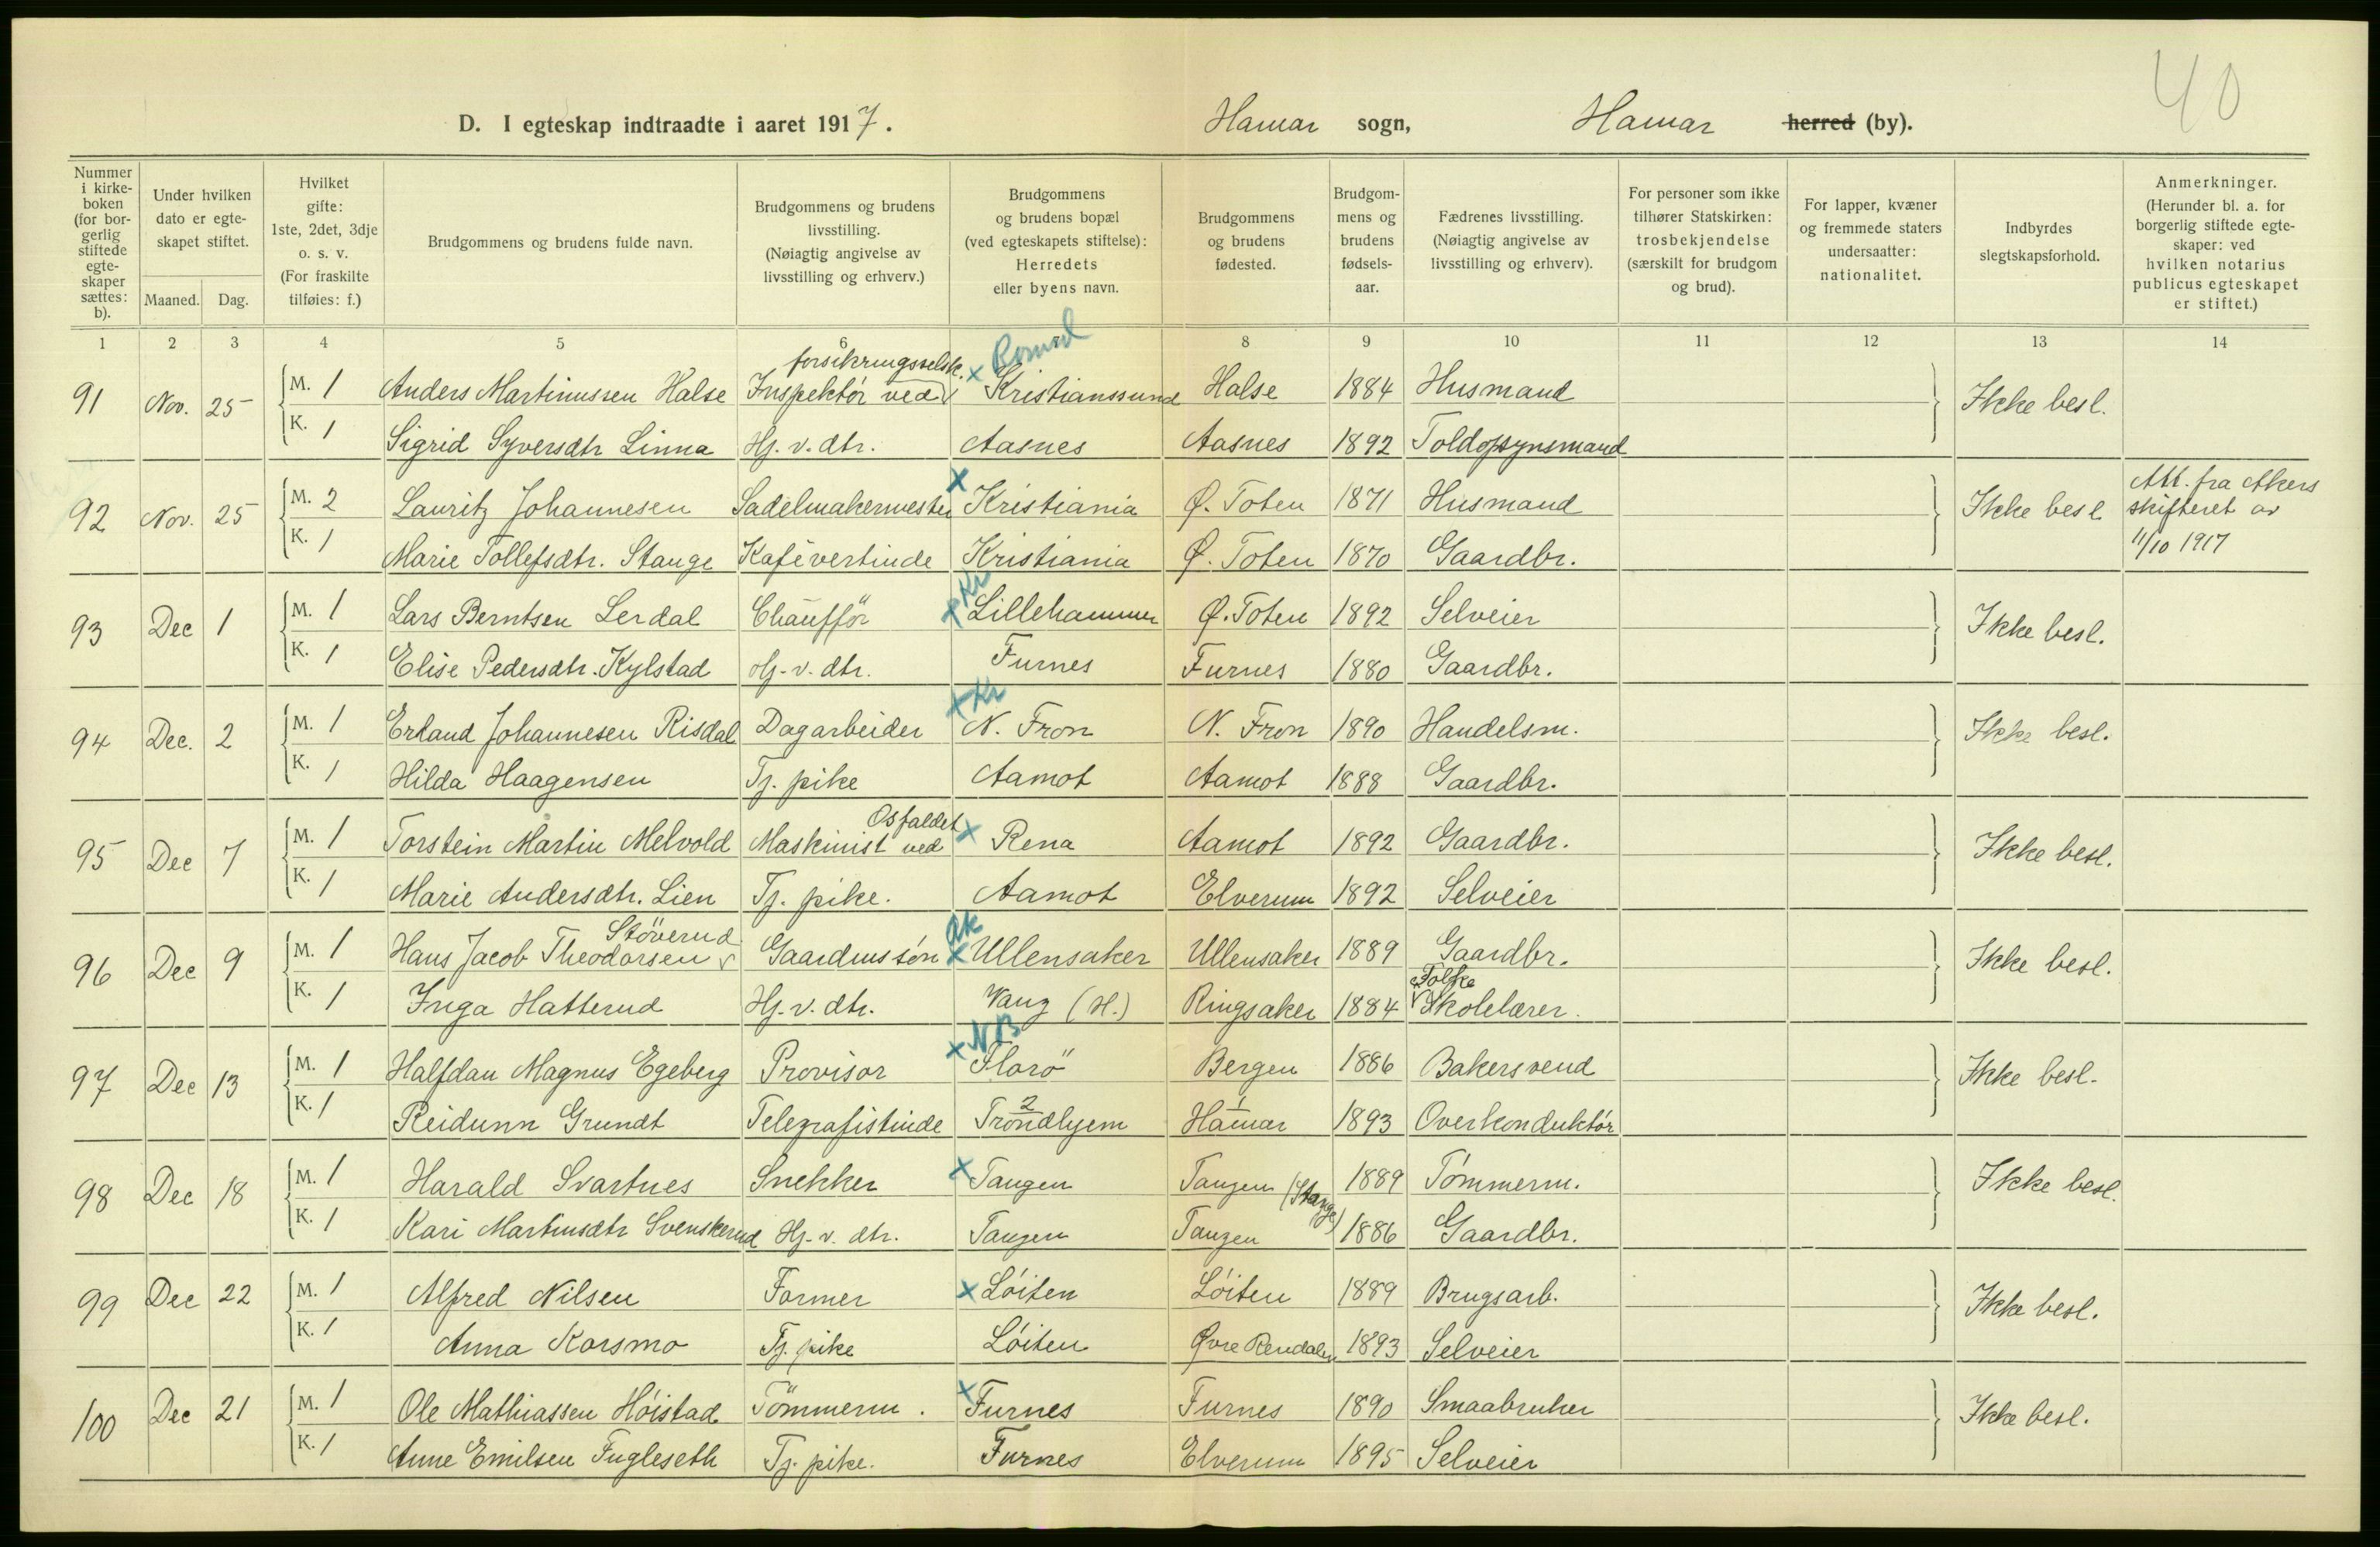 40
D. I egteskap indtraadte i aaret 1917. Hamar sogn, Hamar herred (by).
Nummer i kirke-boken (for bor-gerlig stiftede egte-skaper sættes: b).
Under hvilken dato er egte-skapet stiftet.
Maaned. Dag.
Hvilket gifte: 1ste, 2det, 3dje o. s. v. (For fraskilte tilføies: f.)
Brudgommens og brudens fulde navn.
Brudgommens og brudens livsstilling. (Nøiagtig angivelse av livsstilling og erhverv.)
Brudgommens og brudens bopæl (ved egteskapets stiftelse): Herredets eller byens navn.
Brudgommens og brudens fødested.
Brudgom-mens og brudens fødsels-aar.
Fædrenes livsstilling. (Nøiagtig angivelse av livsstilling og erhverv).
For personer som ikke tilhører Statskirken: trosbekjendelse (særskilt for brudgom og brud).
For lapper, kvæner og fremmede staters undersaatter: nationalitet.
Indbyrdes slegtskapsforhold.
Anmerkninger. (Herunder bl. a. for borgerlig stiftede egte-skaper: ved hvilken notarius publicus egteskapet er stiftet.)
1 2 3 4 5 6 8 9 10 11 12 13 14
forsikringsselsk. × Romsd
91 Nov. 25 M. 1 Anders Martinussen Halse Inspektør ved Kristianssund Halse 1884 Husmand Ikke besl.
K. 1 Sigrid Syversdtr Linna Hj. v. dtr. Aasnes Aasnes 1892 Toldopsynsmand
92 Nov. 25 M. 2 Lauritz Johannesen Sadelmakermester × Kristiania Ø. Toten 1871 Husmand Ikke besl Att. fra Akers skifteret av 11/10 1917
K. 1 Marie Tollefsdtr. Stange Kafévertinde Kristiania Ø. Toten 1870 Gaardbr.
× Kr
93 Dec 1 M. 1 Lars Berntsen Lerdal Chaufför Lillehammer Ø. Toten 1892 Selveier Ikke besl.
K. 1 Elise Pedersdtr. Kylstad Hj. v. dtr. Furnes Furnes 1880 Gaardbr.
× Kr
94 Dec. 2 M. 1 Erland Johannesen Risdal Dagarbeider N. Fron N. Fron 1890 Handelsm. Ikke besl.
K. 1 Hilda Haagensen Tj. pike Aamot Aamot 1888 Gaardbr.
Osfaldet
95 Dec 7 M. 1 Torstein Martin Melvold Maskinist ved × Rena Aamot 1892 Gaardbr. Ikke besl.
K. 1 Marie Andersdtr. Lien Tj. pike. Aamot Elverum 1892 Selveier
Støverud Ak
96 Dec 9 M. 1 Hans Jacob Theodorsen Gaardmssön × Ullensaker Ullensaker 1889 Gaardbr. Ikke besl.
Folke
K. 1 Inga Hatterud Hj. v. dtr. Vang (H.) Ringsaker 1884 Skolelærer.
× NB
97 Dec 13 M. 1 Halfdan Magnus Egeberg Provisor Florö Bergen 1886 Bakersvend Ikke besl.
2 1
K. 1 Reidunn Grundt Telegrafistinde Trondhjem Hamar 1893 Overkonduktör
98 Dec 18 M. 1 Harald Svartnes Snekker × Tangen Tangen (Stange) 1889 Tömmerm. Ikke besl.
K. 1 Kari Martinsdtr Svenskerud Hj. v. dtr. Tangen Tangen 1886 Gaardbr.
99 Dec 22 M. 1 Alfred Nilsen Former × Löiten Löiten 1889 Brugsarb. Ikke besl.
K. 1 Anna Korsmo Tj. pike Löiten Øvre Rendalen 1893 Selveier
100 Dec 21 M. 1 Ole Mathiassen Höistad Tömmerm. × Furnes Furnes 1890 Smaabruker Ikke besl.
K. 1 Anne Emilsen Fugleseth Tj. pike. Furnes Elverum 1895 Selveier